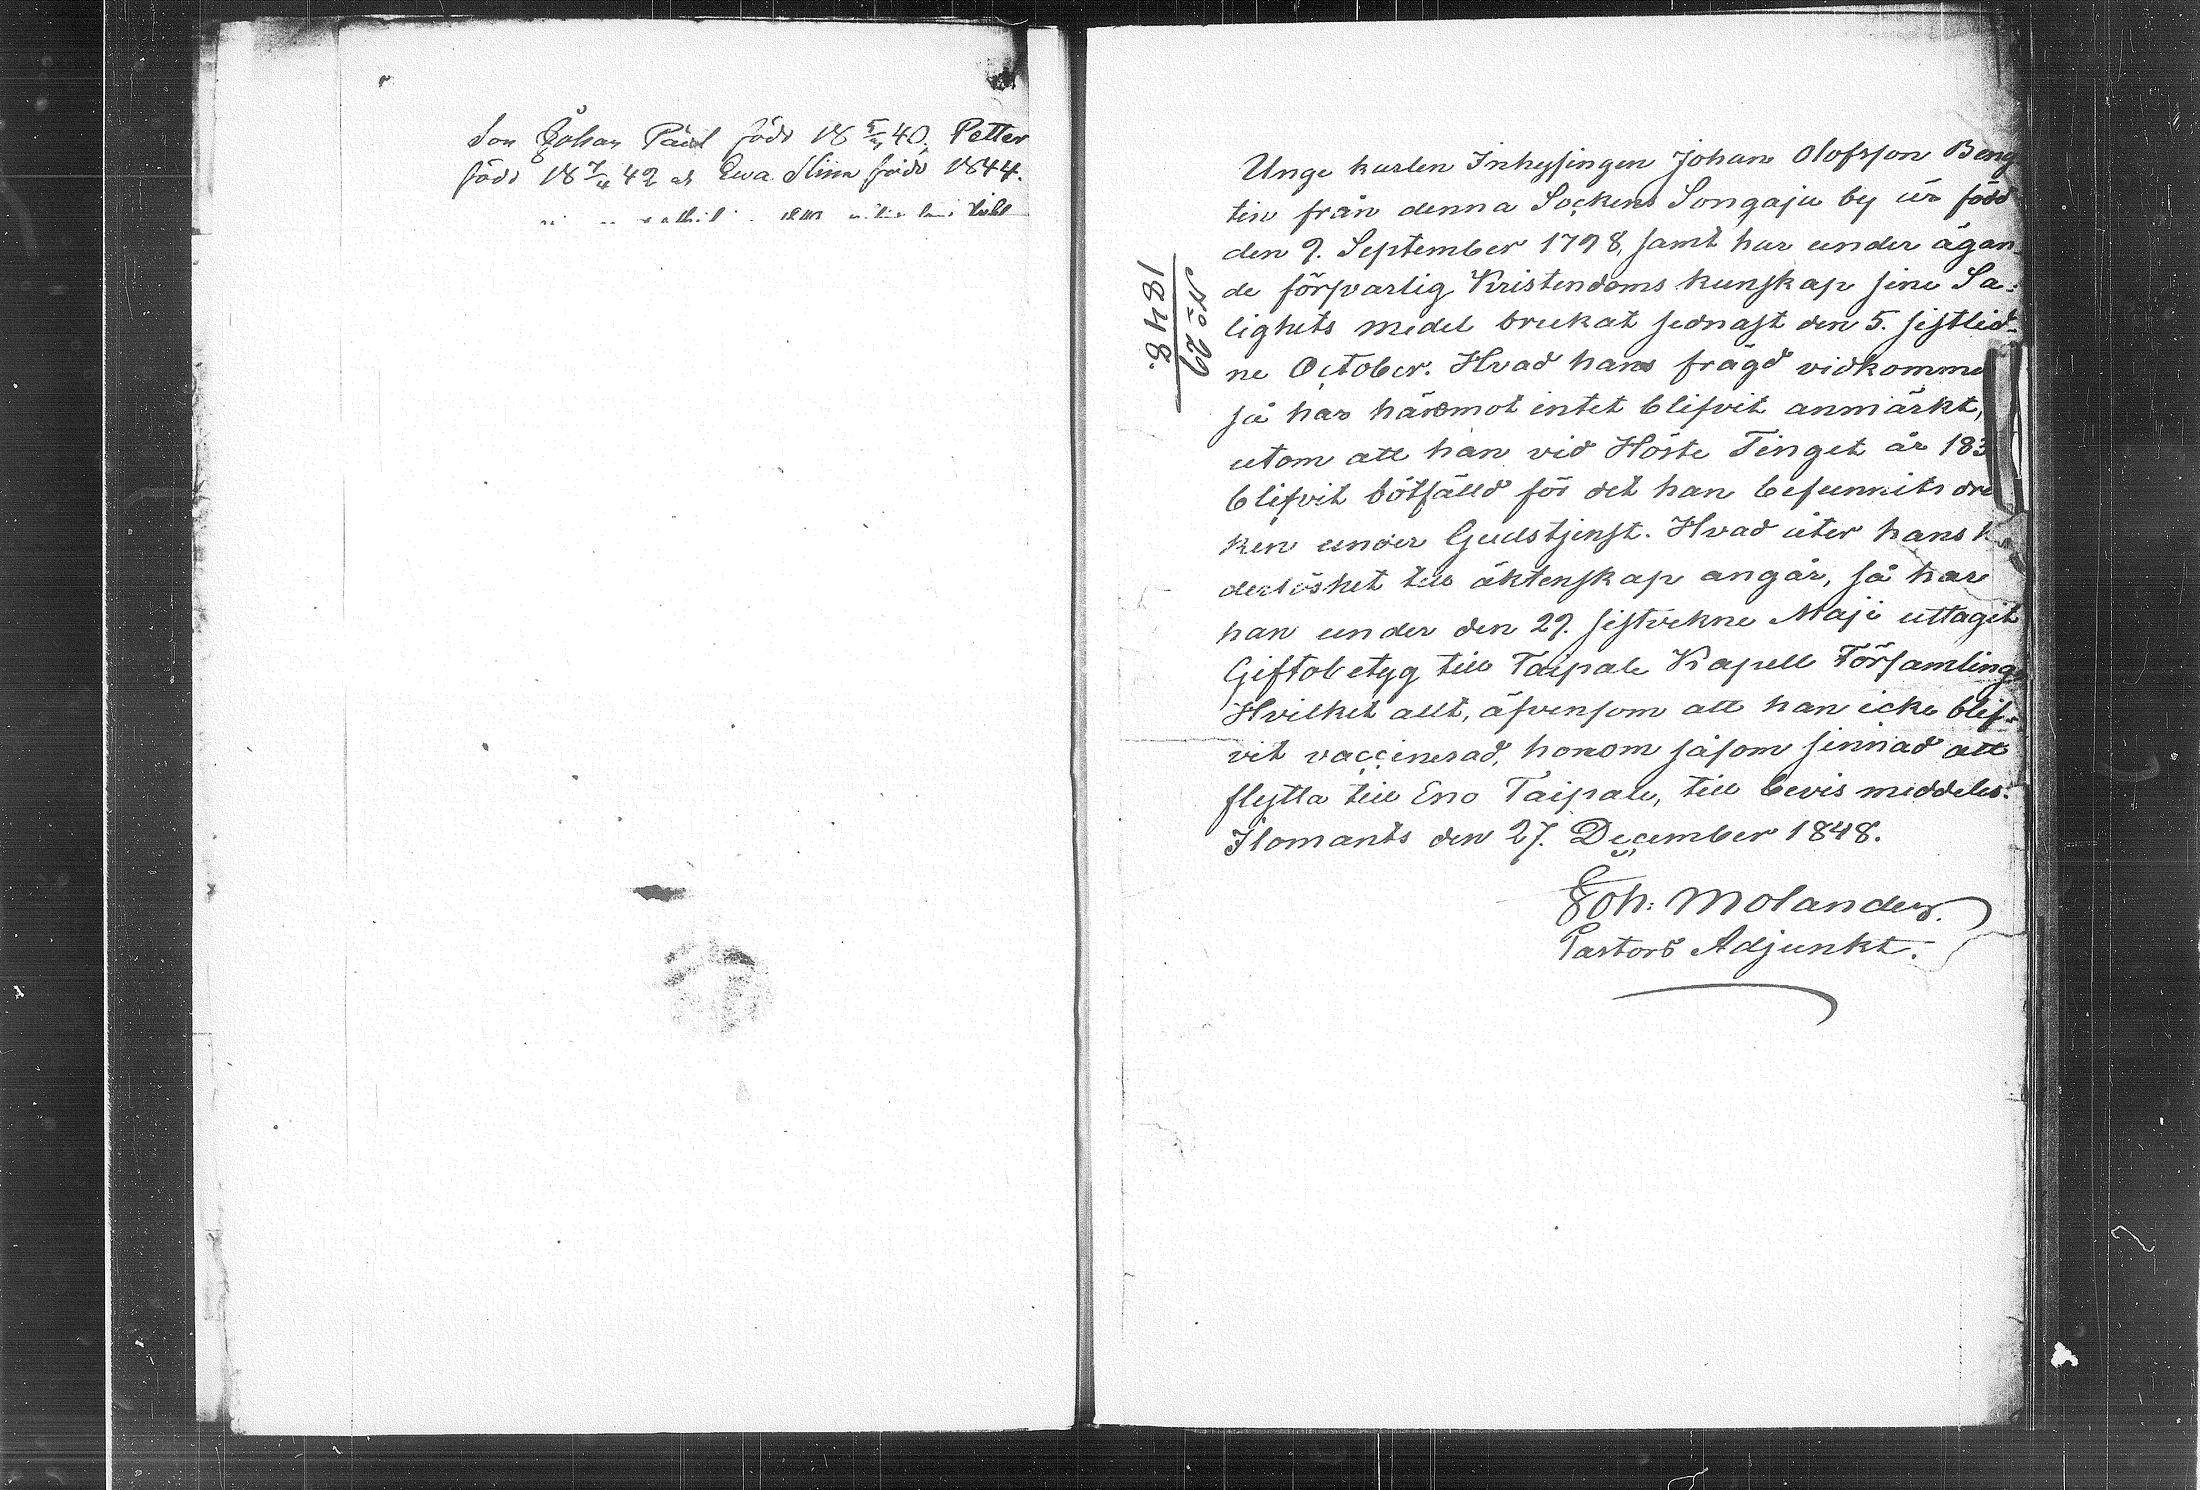 Son Johan Påhl född 18 5/ 40, Petter
född 18 7/4 42 och Ewa Stina född 1844.
No 29
1848.
Unge karlen Inhysingen Johan Olofsson Beng
tin från denna Sockens Songaju by är född
den 9. September 1798, samt har under ägan-
de försvarlig Kristendoms kunskap sine Sa-
lighets medel brukat sednast den 5. sistlid-
ne October. Hvad hans frägd vidkomme
så har häremot intet blifvit anmärkt,
utom att han vid Höste Tinget år 183
blifvit bötfälld för det han befunnits dru
ken under Gudstjenst. Hvad åter hans h
derlöshet till äktenskap angår, så har
han under den 29. sistvekne Maji uttagit
Giftobetyg till Taipale Kapell Församling
Hvilket allt, äfvensom att han icke blif-
vit vaccinerad, honom såsom sinnad att
flytta till Eno Taipale, till bevis meddeles.
Ilomants den 27. December 1848.
Joh: Molander.
Pastors Adjunkt.